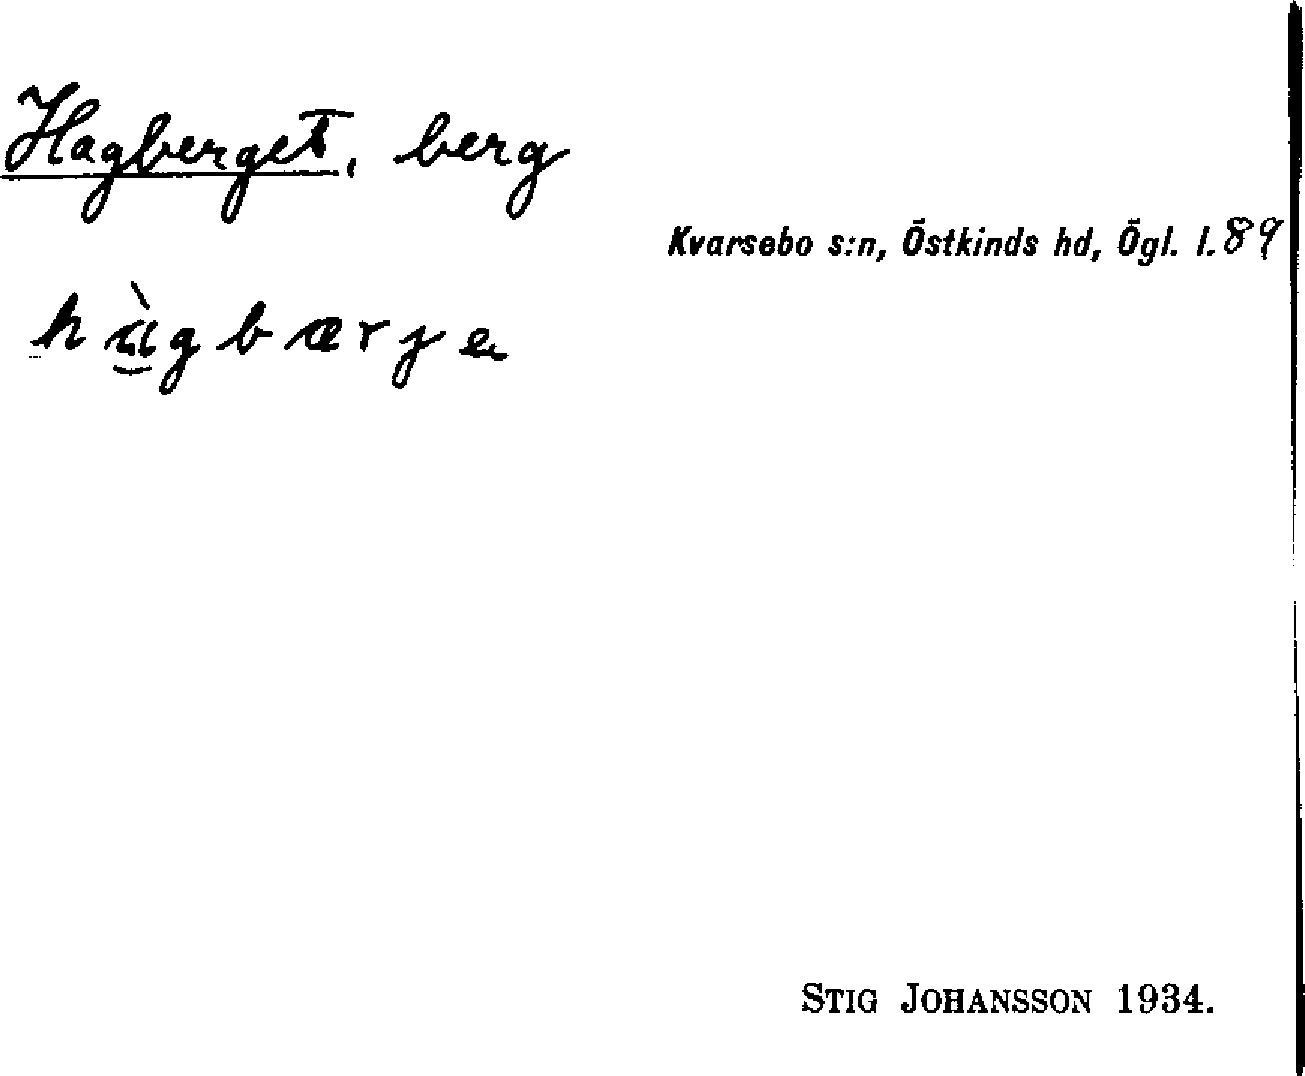 Hagberget, berg
Kvarsebo s:n, Östkinds hd, Ögl. l. 89
STIG JOHANSSON 1934.